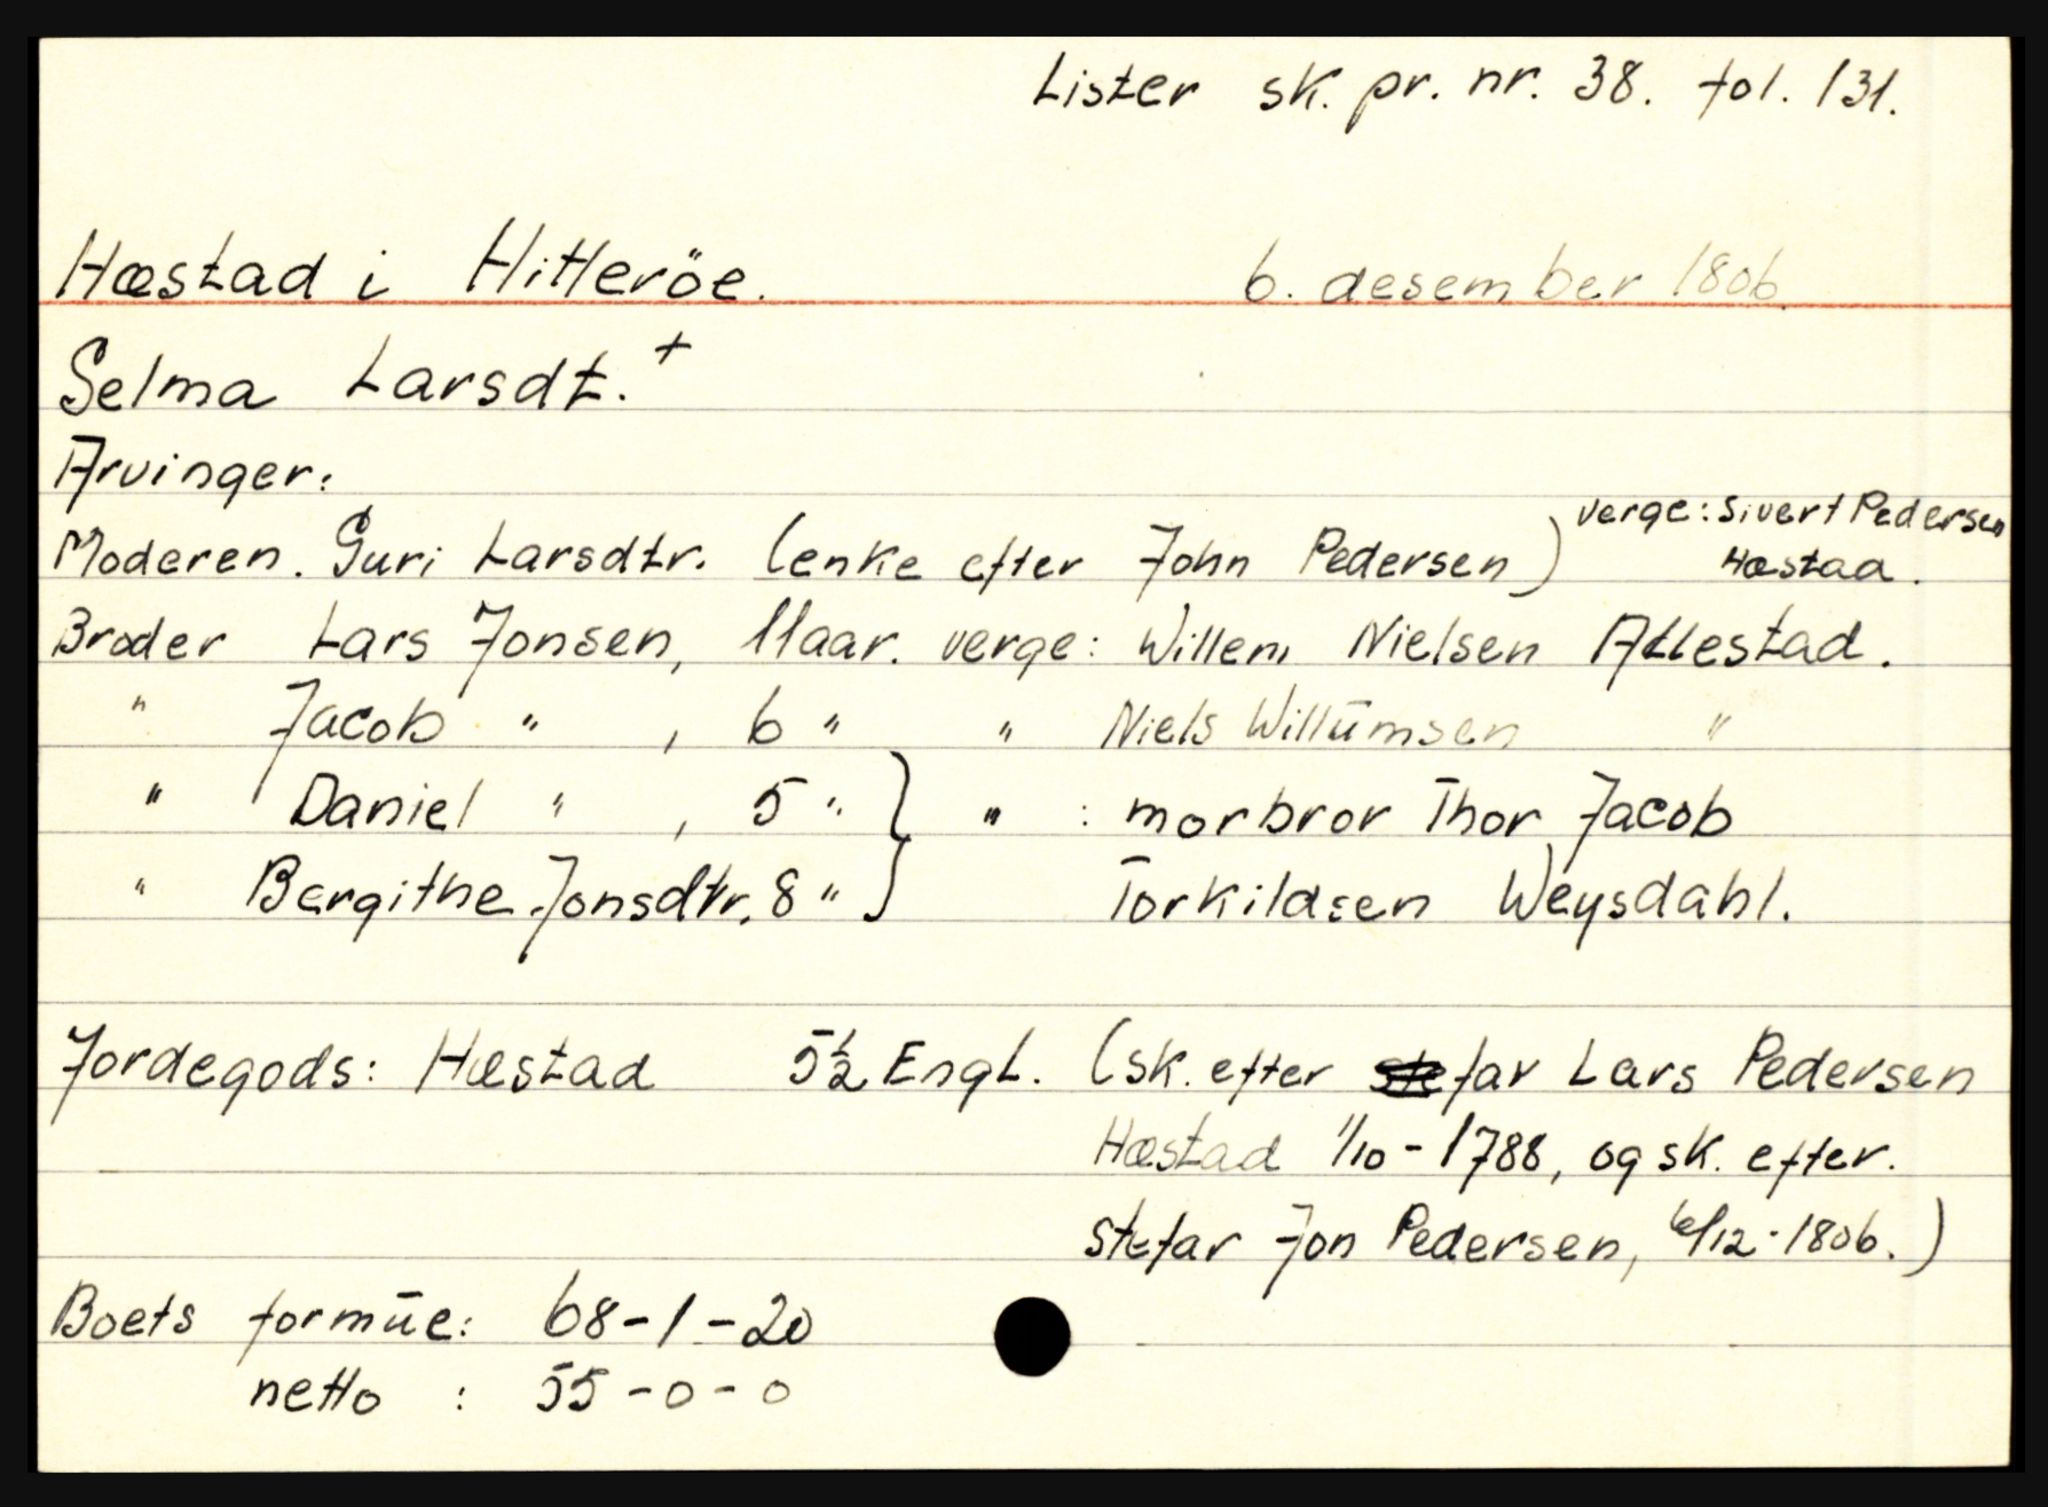 Lister sk. pr. nr. 38. fol. 131.
Hæstad i Hitteröe. 6. desember 1806.
Selma Larsdt. +
Arvinger:
verge: Sivert Pedersen
Moderen. Guri Larsdtr. (enke efter John Pedersen) Hæstad.
Broder Lars Jonsen, 11 aar. verge: Willem Nielsen Allestad.
" Jacob " , 6 " " Niels Willūmsen "
" Daniel " , 5 " } " : morbror Thor Jacob
" Bergithe Jonsdtr. 8 " } Torkildsen Weysdahl.
Jordegods: Hæstad 5½ Engl. (sk. efter far Lars Pedersen
Hæstad 1/10 - 1788, og sk. efter.
Stefar Jon Pedersen, 6/12 - 1806.)
Boets formūe: 68 - 1 - 20
netto : 55 - 0 - 0